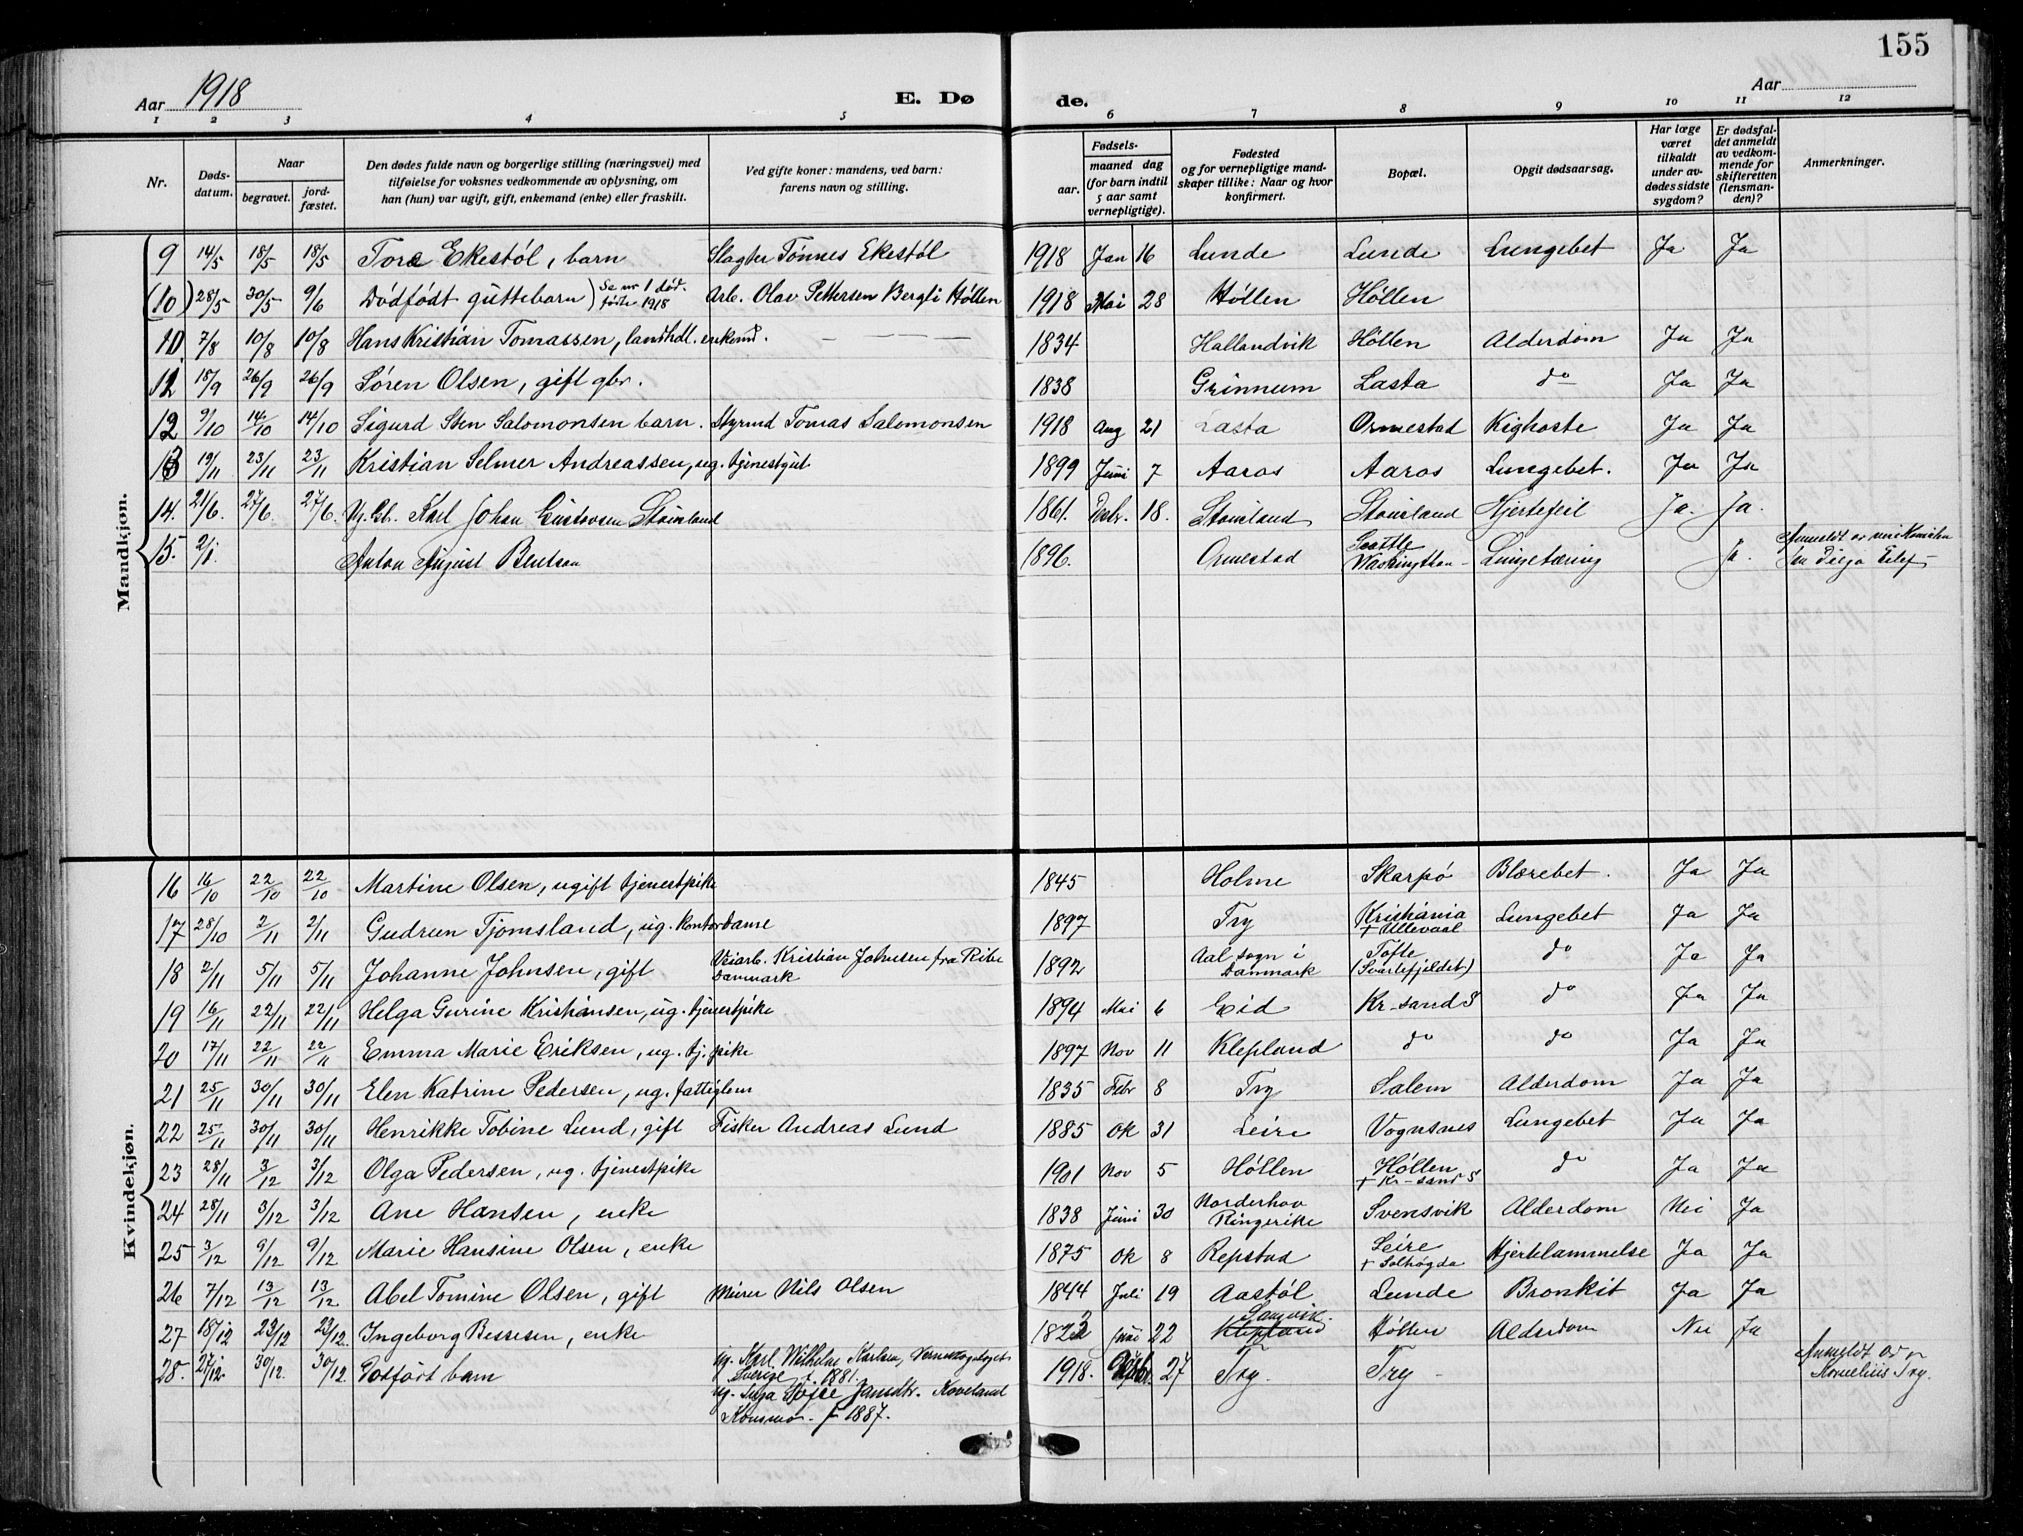 155
Aar 1918 E. Dø de. Aar
1 2 3 4 5 6 7 8 9 10 11 12
Nr. Døds-datum. Naar begravet. jord-fæstet. Den dødes fulde navn og borgerlige stilling (næringsvei) med tilføielse for voksnes vedkommende av oplysning, om han (hun) var ugift, gift, enkemand (enke) eller fraskilt. Ved gifte koner: mandens, ved barn: farens navn og stilling. Fødsels- aar. maaned dag (for barn indtil 5 aar samt vernepligtige). Fødested og for vernepligtige mand-skaper tillike: Naar og hvor konfirmert. Bopæl. Opgit dødsaarsag. Har læge været tilkaldt under av-dødes sidste sygdom? Er dødsfal-det anmeldt av vedkom-mende for skifteretten (lensman-den)? Anmerkninger.
Mandkjøn.
9 14/5 18/5 18/5 Tore Ekestøl, barn Slagter Tønnes Ekestøl 1918 Jan 16 Lunde Lunde Lungebet Ja Ja
(10) 28/5 30/5 9/6 Dødfødt guttebarn) Se nr 1 død-fødte 1918 Arb. Olav Pettersen Bergli Høllen 1918 Mai 28 Høllen Høllen
10. 7/8 10/8 10/8 Hans Kristian Tomassen, landhdl. enkemd. — — — 1834 Hallandvik Høllen Alderdom Ja Ja
11 18/9 26/9 26/9 Søren Olsen, gift gbr. 1838 Grinnum Lasta do Ja Ja
12 9/10 14/10 14/10 Sigurd Sten Salomonsen barn. Styrmd Tomas Salomonsen 1918 Aug 21 Lasta Ormestad Kighoste Ja Ja
13 19/11 23/11 23/11 Kristian Selmer Andreassen, ug. tjenestgut 1899 Juni 7 Aaros Aaros Lungebet. Ja Ja
14. 21/6. 27/6. 27/6. Ug. Gb. Karl Johan Gustavsen Stausland 1861. Desbr. 18. Stausland Stausland Hjertefeil Ja. Ja.
15. 2/1. Anton August Bentsen 1896. Ormestad Seattle Washingthon - Lungetæring Ja. Anmeldt av
Kvindekjøn.
16 16/10 22/10 22/10 Martine Olsen, ugift tjenestpike 1845 Holme Skarpø Blærebet. Ja Ja
17 28/10 2/11 2/11 Gudrun Tjomsland, ug. kontordame 1897 Try Kristiania + Ullevaal Lungebet Ja Ja
18 2/11 5/11 5/11 Johanne Johnsen, gift Veiarb. Kristian Johnsen fra Ribe Danmark 1892 Aal sogn i Danmark Tofte (Svartefjeldet) do Ja Ja
19 16/11 22/11 22/11 Helga Gurine Kristiansen, ug. tjenestpike 1894 Mai 6 Eid Kr-sand S do Ja Ja
20 17/11 22/11 22/11 Emma Marie Eriksen, ug. tj. pike 1897 Nov 11 Klepland do do Ja Ja
21 25/11 30/11 30/11 Elen Katrine Pedersen, ug. fattiglem 1835 Febr 8 Try Salem Alderdom Ja Ja
22 25/11 30/11 30/11 Henrikke Tobine Lund, gift Fisker Andreas Lund 1885 Ok 31 Leire Vognsnes Lungebet Ja Ja
23 28/11 3/12 3/12 Olga Pedersen, ug. tjenestpike 1901 Nov 5 Høllen Høllen + Kr-sand S do Ja Ja
24 28/11 3/12 3/12 Ane Hansen, enke 1838 Juni 30 Norderhov Ringerike Svensvik Alderdom Nei Ja
25 3/12 9/12 9/12 Marie Hansine Olsen, enke 1875 Ok 8 Repstad Leire + Solhøgda Hjertelammelse Ja Ja
26 7/12 13/12 13/12 Abel Tomine Olsen, gift Murer Nils Olsen 1844 Juli 19 Aastøl Lunde Bronkit Ja Ja
27 18/12 23/12 23/12. Ingeborg Bessesen, enke 1823 Juni 22 Klepland Høllen Alderdom Nei Ja
28. 27/12. 30/12. 30/12. Dødført barn Ug. Karl Wilhelm Karlsen, Sverige f. 1881. ug. Sofie Jansdtr. Koveland Konsmo. f 1887. 1918. 27 Try. Try - Anmeldt av Kornelius Try.